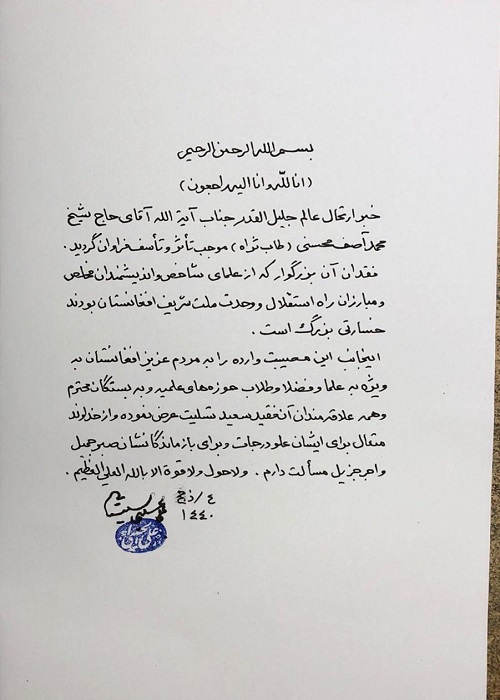 بسم الله الرحمن الرحیم
(انا لله وانا الیه راجعون)
خبر ارتحال عالم جلیل القدر جناب آیة الله آقای حاج شیخ
محمد آصف محسنی (طاب ثراه) موجب تأثر و تأسف فراوان گردید.
فقدان آن بزرگوار که از علمای شاخص واندیشمندان مخلص
ومبارزان راه استقلال ووحدت ملت شریف افغانستان بودند
خسارتی بزرگ است.
اینجانب این مصیبت وارده را به مردم عزیز افغانستان به
ویژه به علما وفضلا وطلاب حوزه های علمیه وبه بستگان محترم
وهمه علاقه مندان آن فقید سعید تسلیت عرض نموده واز خداوند
متعال برای ایشان علو درجات وبرای بازماندگانشان صبر جمیل
واجر جزیل مسألت دارم. ولاحول ولا قوة الا بالله العلی العظیم.
٤/ذح
١٤٤٠